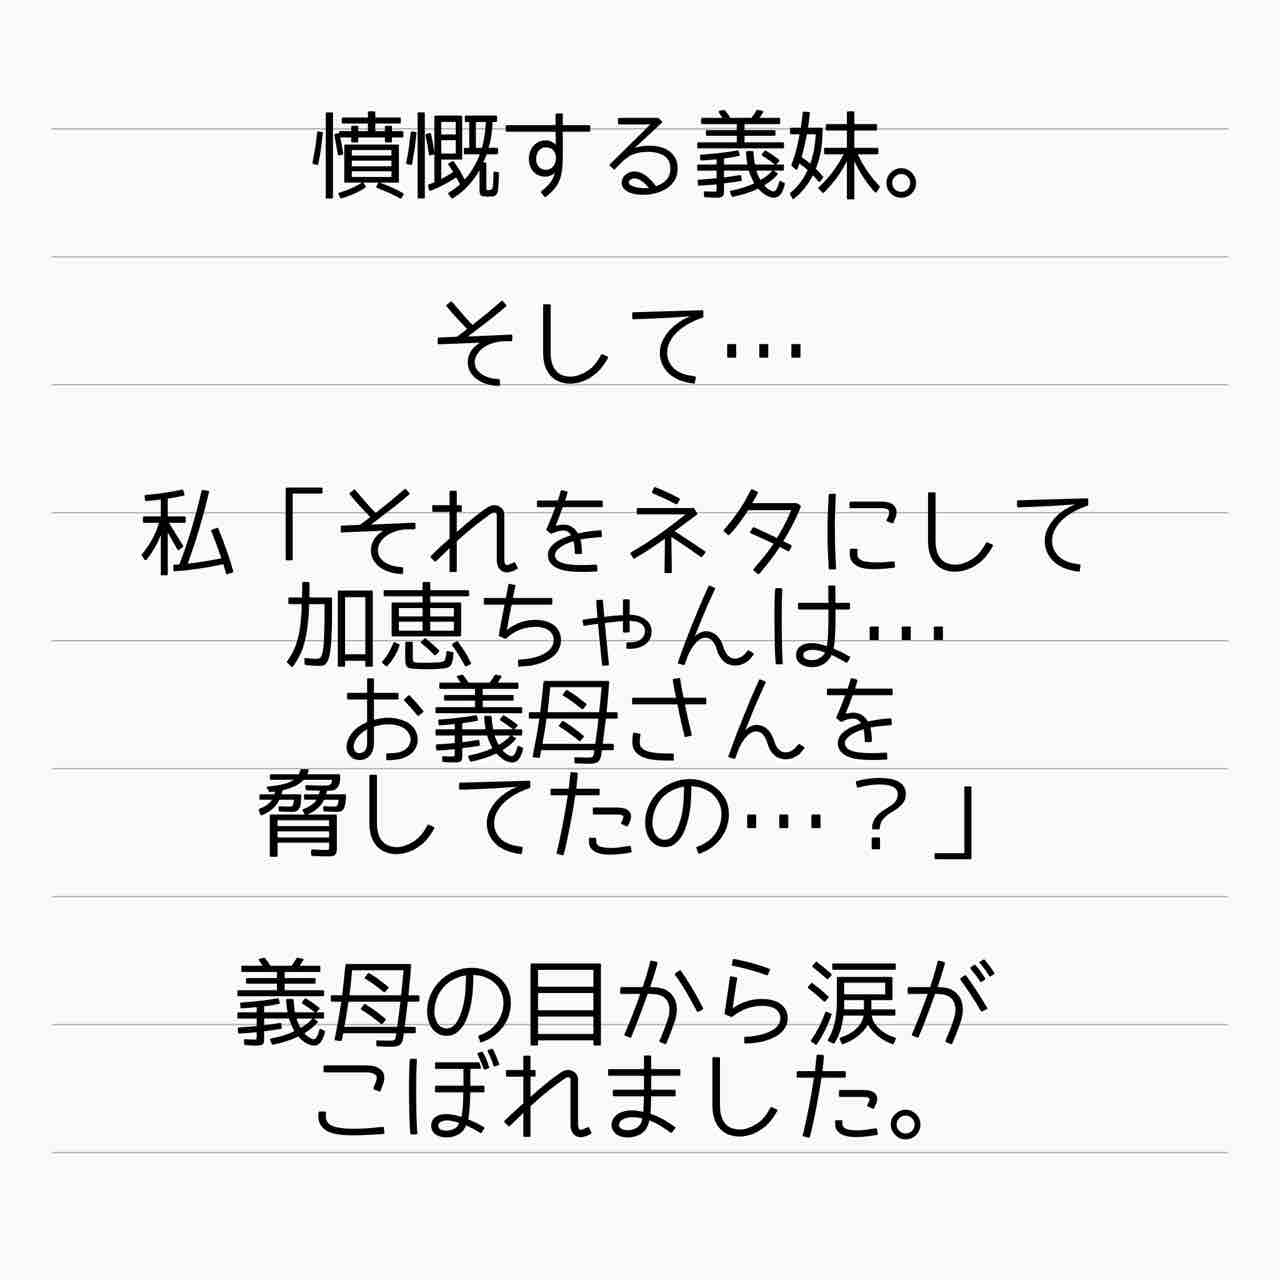 憤慨する義妹。
そして…
私「それをネタにして
加恵ちゃんは…
お義母さんを
脅してたの…？」
義母の目から涙が
こぼれました。